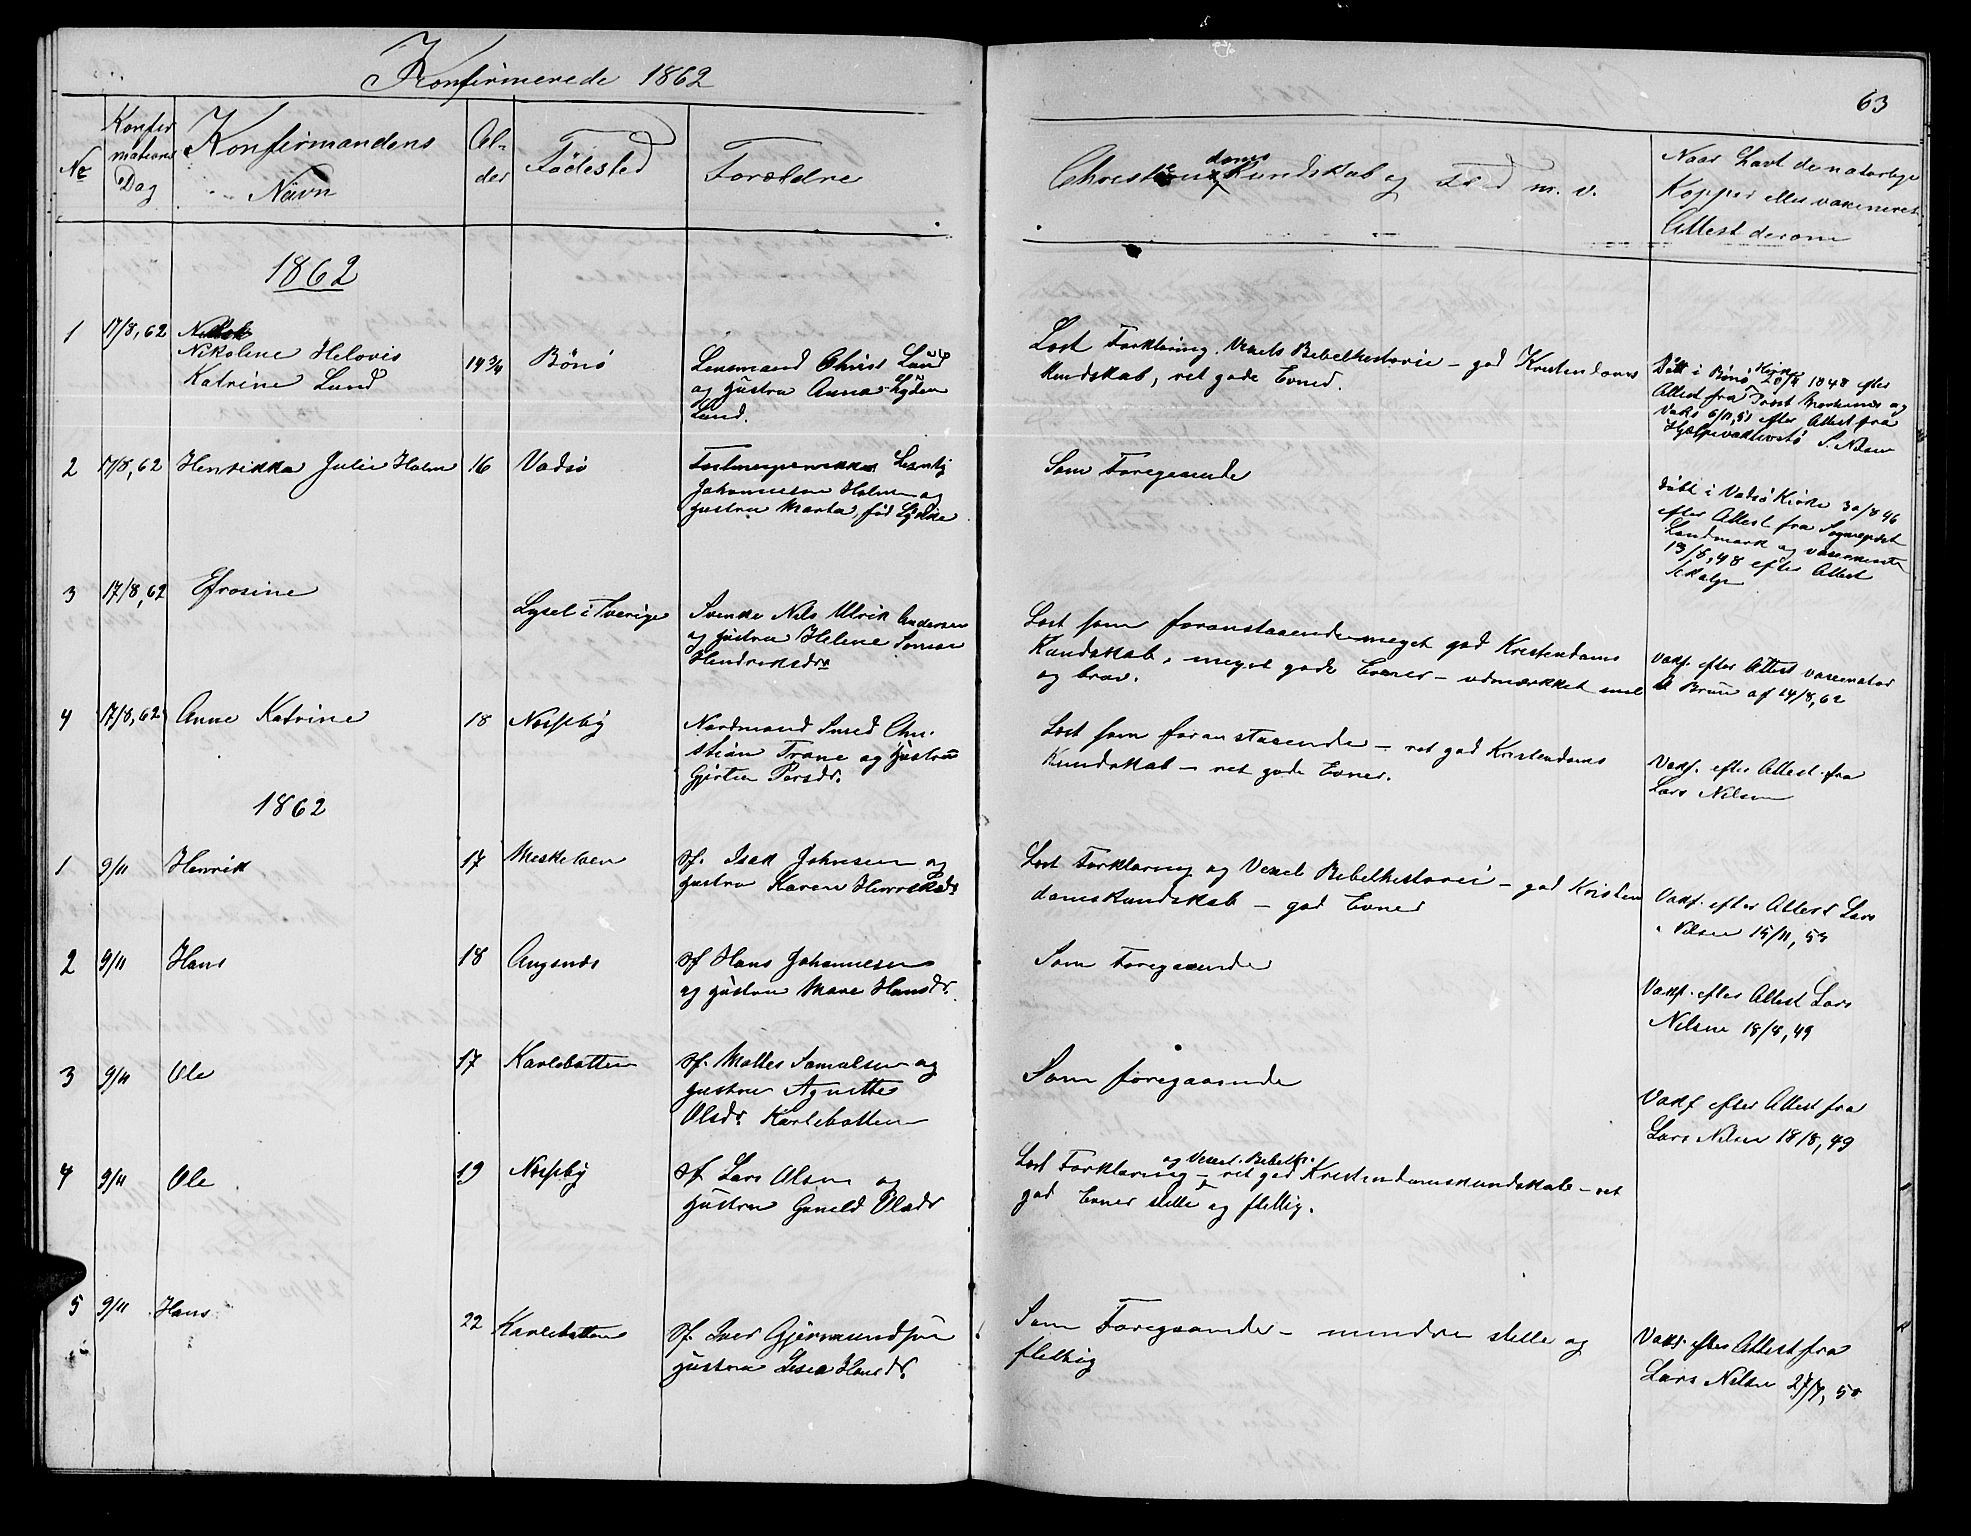 Konfirmerede 1862
63
No
Konfir
mations
Dag
Konfirmandens
Navn
Al-
der
Födested
Forældre
Christendoms Kundskab og Flid m. v.
Naar havt de naturlige
Kopper eller vaxineret
Attest derom
1862
1 17/8, 62
Nikoline Helovis
Katrine Lund
14 3/4 Bönö
Lensmand Christ Lund
og hustru Anna
Lund.
Læst Forklaring Vexels Bibelhistorie - god Kristendoms
Kundskab, ret gode Evner.
Döbt i Bönö Kirke 1848 efter
Attest fra Provst og
Vaks 6/11, 51 efter Attest fra
S. Nilsen
2 17/8, 62 Henrikka Julie Holm 16 Vadsö
Johannesen Holm og
hustru Marta, föd Lydke
Som Foregaaende
döbt i Vadsö Kirke 30/8 46
efter Attest fra Sogneprest
Landmark og vaccineret
13/8, 48 efter Attest
3 17/8, 62 Efrosine
Lysel i Sverige
Svenske Nils Ulrik Andersen
og hustru Helene
Hendriksdr
Læst som foranstaaende meget god Kristendoms
Kundskab, meget gode Evner - udmærket snil
og brav.
Vakf. efter Attest vaxinatör
Bruu af 14/8, 62
4 17/8, 62 Anne Katrine 18 Næsseby
Nordmand Smed Chri-
stian Trane og hustru
Gjertru Persdr.
Læst som foranstaaende - ret god Kristendoms
Kundskab - ret gode Evner.
Vakf. efter Attest fra
Lars Nilsen
1862
1 9/11 Henrik 17 Meskelven
Sf. Isak Johnsen og
hustru Karen Henriksdr
Læst Forklaring og Vexels Bibelhistorie - god Kristen
domskundskab - god Evner
Vakf. efter Attest Lars
Nilsen 15/11, 53
2 9/11 Hans 18 Angsnæs
Sf Hans Johannesen
og hustru Mare Hansdr.
Som Foregaaende
Vakf. efter Attest Lars
Nilsen 18/8, 49
3 9/11 Ole 17 Karlebotten
Sf. Mattes Samulsen og
hustru Agnette
Olsdr. Karlebotten
Som foregaaende
Vakf efter Attest fra
Lars Nilsen 18/8, 49
4 9/11 Ole 19 Næsseby
Sf Lars Olsen og
hustru Gunild Olsdr
og Vexels Bibelh.
Læst Forklaring - ret god Kristendomskundskab - ret
god Evner stille og flittig.
5 9/11 Hans 22 Karlebotten
Sf. Iver Gjermundsen
hustru Lisa Hansdr.
Som Foregaaende - mindre stille og
flittig
Vakf. efter Attest fra
Lars Nilsen 27/7, 50